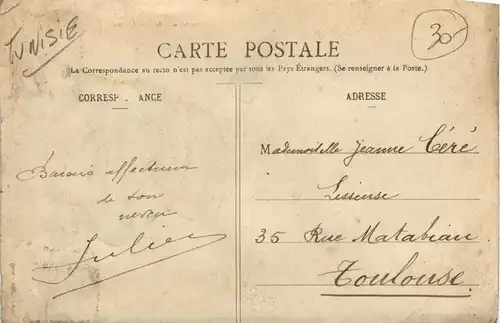 TUNISIE
30
CARTE POSTALE
(La Correspondance au recto n'est pas acceptée par tous les Pays Étrangers. (Se renseigner à la Poste.)
CORRESP . ANCE
ADRESSE
Baisers affectueux
de ton
neveu
Julien
Mademoiselle Jeanne Céré
Lisseuse
35 Rue Matabiau
Toulouse